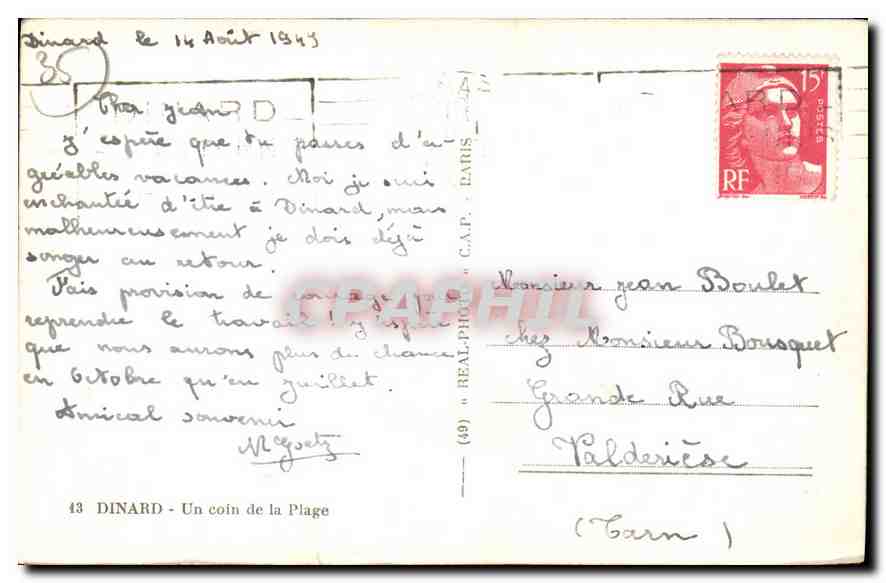 Dinard le 14 Août 1949
35
Cher Jean
J'espère que tu passes d'a-
gréables vacances. Moi je suis
enchantée d'être à Dinard, mais
malheureusement je dois déjà
songer au retour.
Fais provision de courage pour
reprendre le travail ! J'espère
que nous aurons plus de chance
en Octobre qu'en Juillet.
Amical souvenir
13 DINARD - Un coin de la Plage
(49) « REAL-PHOTO » C.A.P. - PARIS
15F
POSTES
RF
Monsieur Jean Boulet
chez Monsieur Bousquet
Grande Rue
Valderièse
(Tarn)
CPAPHIL